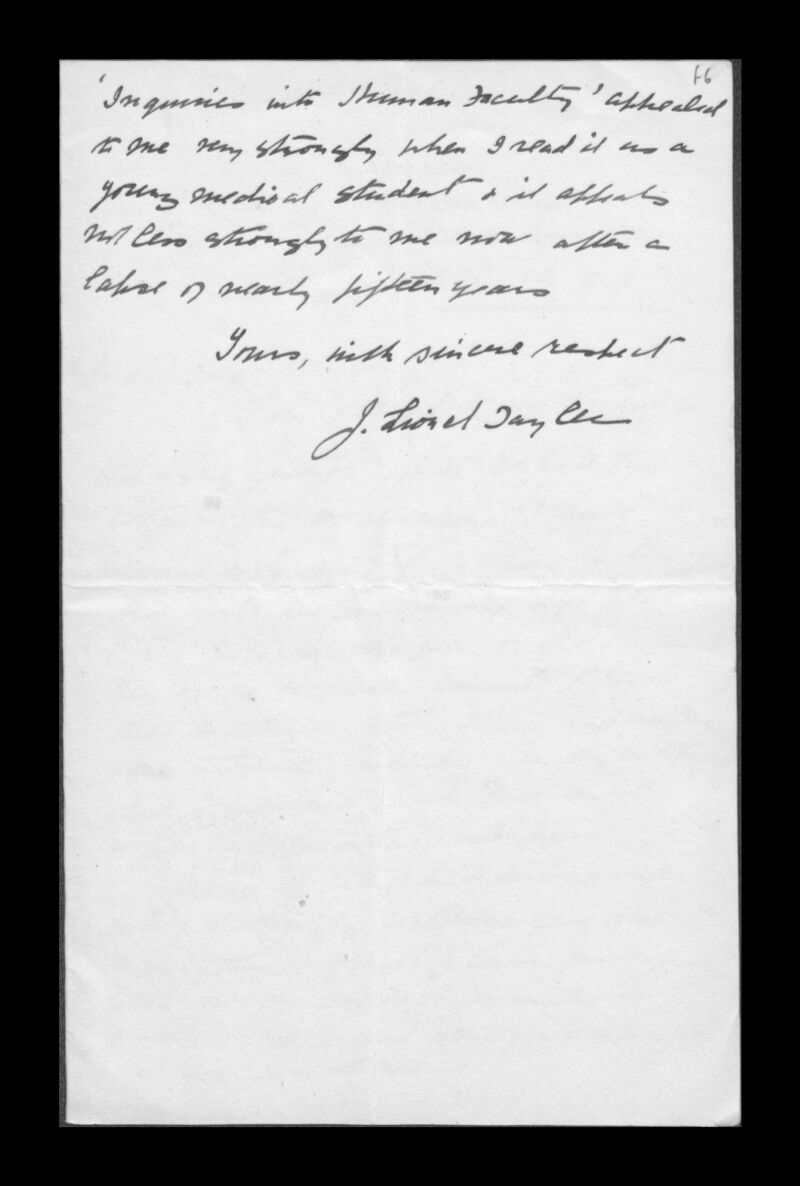 'Inquiries into Human Faculty' appealed
to me very strongly when I read it as a
young medical student & it appeals
not less strongly to me now after a
lapse of nearly fifteen years
Yours, with sincere respect
J. Lionel Tayler